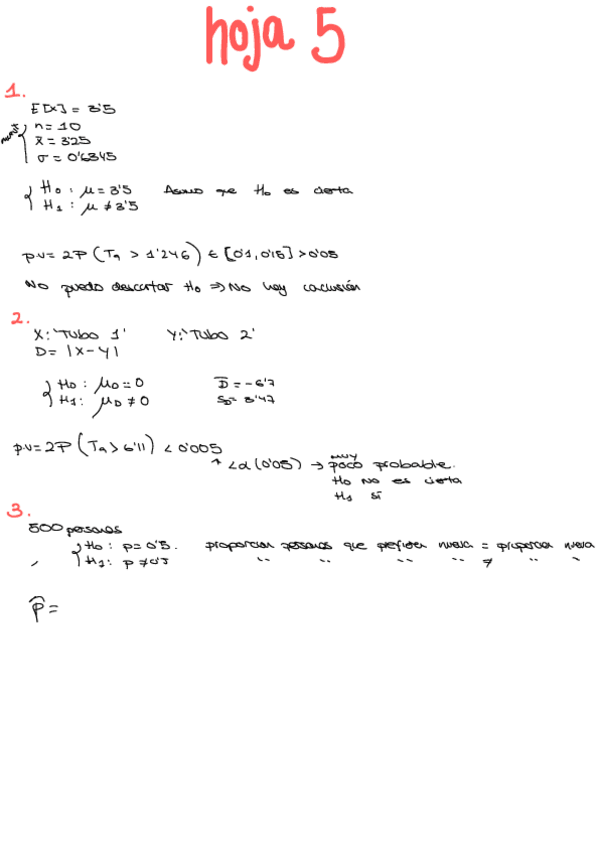 hoja 5
1.
E[X] = 3'5
n = 10
x̄ = 3'25
σ = 0'6345
H0 : μ = 3'5 Asumo que H0 es cierta
H1 : μ ≠ 3'5
p.v = 2P (T9 > 1'246) ∈ [0'1, 0'15] > 0'05
No puedo descartar H0 => No hay conclusión
2.
X: 'Tubo 1' Y: 'Tubo 2'
D = |X - Y|
H0 : μD = 0 D̄ = -6'7
H1 : μD ≠ 0 SD = 3'47
p.v = 2P (T9 > 6'11) < 0'005
< α (0'05) → muy poco probable.
H0 no es cierta
H1 sí
3.
500 personas
H0 : p = 0'5. proporción personas que prefieren nueva = proporción nueva
H1 : p ≠ 0'5 " " " " ≠ " "
p̂ =